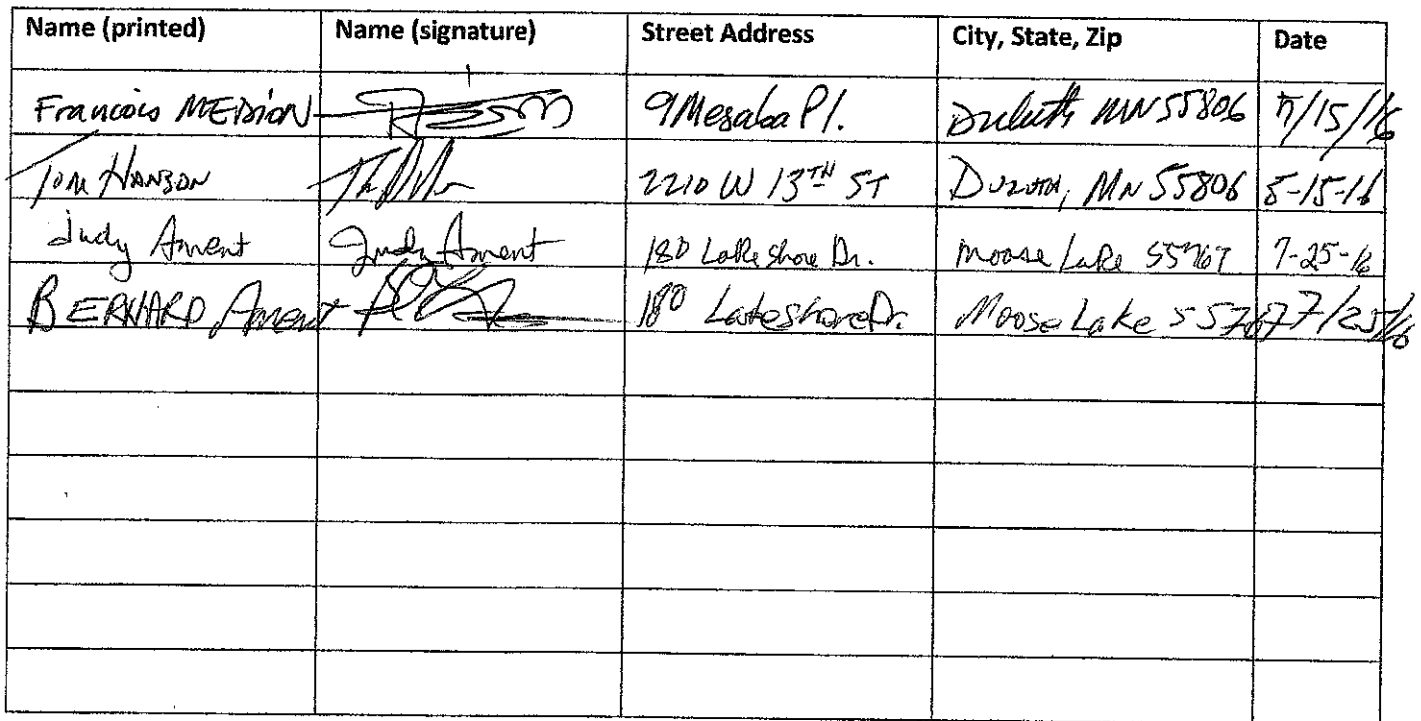 Name (printed) Name (signature) Street Address City, State, Zip Date
Francois MEDION 9 Mesaba Pl. Duluth MN 55806 5/15/16
Tom HANSON 2210 W 13TH ST DULUTH, MN 55806 5-15-16
Judy Ament Judy Ament 180 Lakeshore Dr. Moose Lake 55767 7-25-16
BERNHARD Ament 180 Lakeshore Dr. Moose Lake 55767 7/25/16